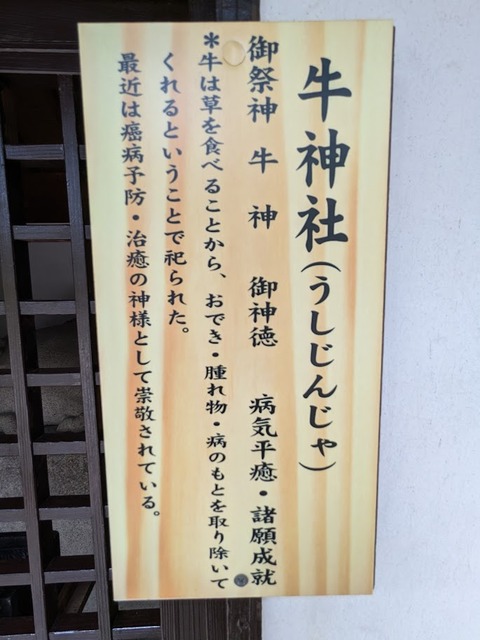 牛神社(うしじんじゃ)
御祭神 牛神 御神徳 病気平癒・諸願成就
*牛は草を食べることから、おでき・腫れ物・病のもとを取り除いて
くれるということで祀られた。
最近は癌病予防・治癒の神様として崇敬されている。